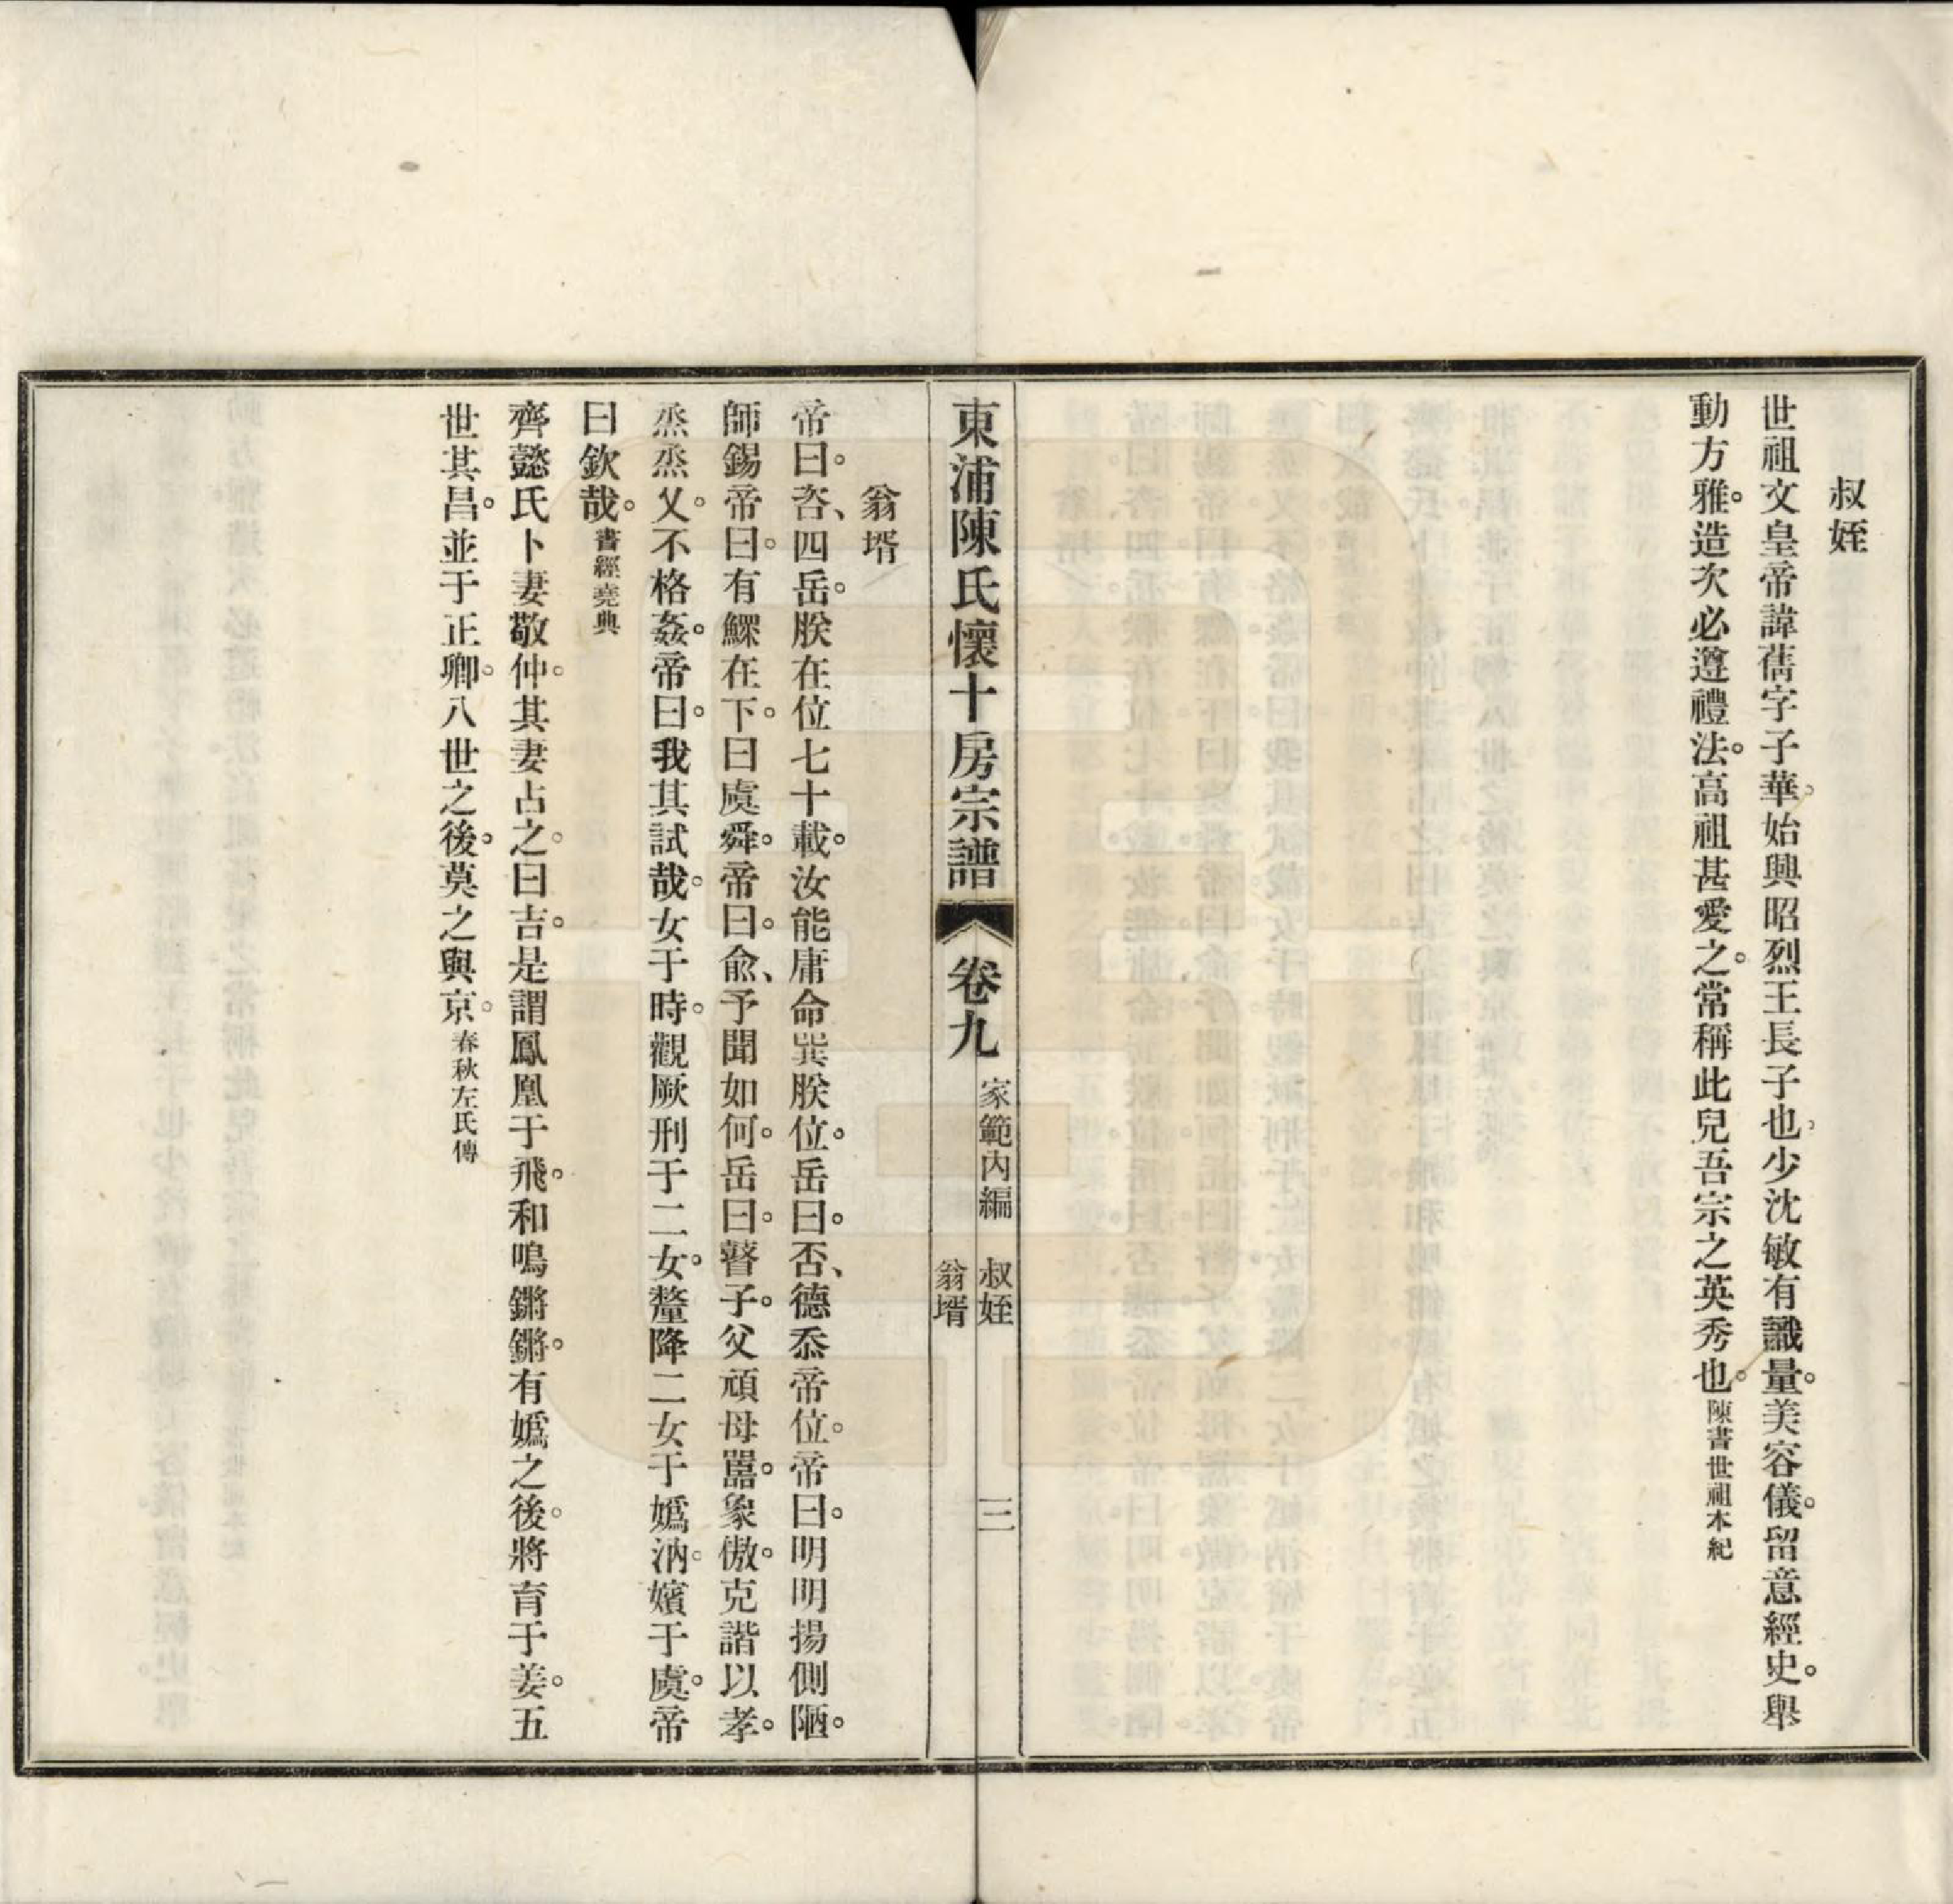 叔姪
世祖文皇帝諱蒨字子華。始興昭烈王長子也。少沈敏有識量。美容儀。留意經史。舉
動方雅。造次必遵禮法。高祖甚愛之。常稱此兒吾宗之英秀也。陳書世祖本紀
東浦陳氏懷十房宗譜 卷九 家範內編 叔姪 翁壻 三
翁壻
帝曰。咨、四岳。朕在位七十載。汝能庸命巽朕位。岳曰。否、德忝帝位。帝曰。明明揚側陋。
師錫帝曰。有鰥在下。曰虞舜。帝曰。俞、予聞如何。岳曰。瞽子。父頑母嚚。象傲。克諧以孝。
烝烝乂。不格姦。帝曰。我其試哉。女于時。觀厥刑于二女。釐降二女于嬀汭。嬪于虞。帝
曰欽哉。書經堯典
齊懿氏卜妻敬仲。其妻占之。曰吉。是謂鳳凰于飛。和鳴鏘鏘。有嬀之後。將育于姜。五
世其昌。並于正卿。八世之後。莫之與京。春秋左氏傳